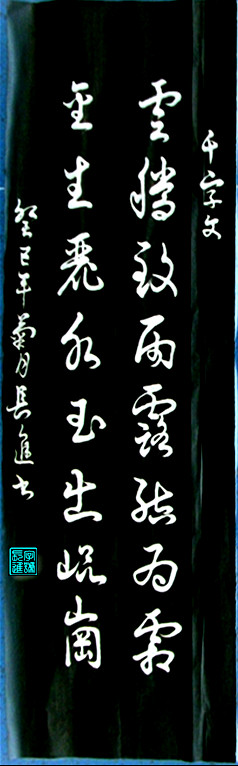 千字文
雲騰致雨露結為霜
金生麗水玉出崑崗
癸巳年菊月長進书